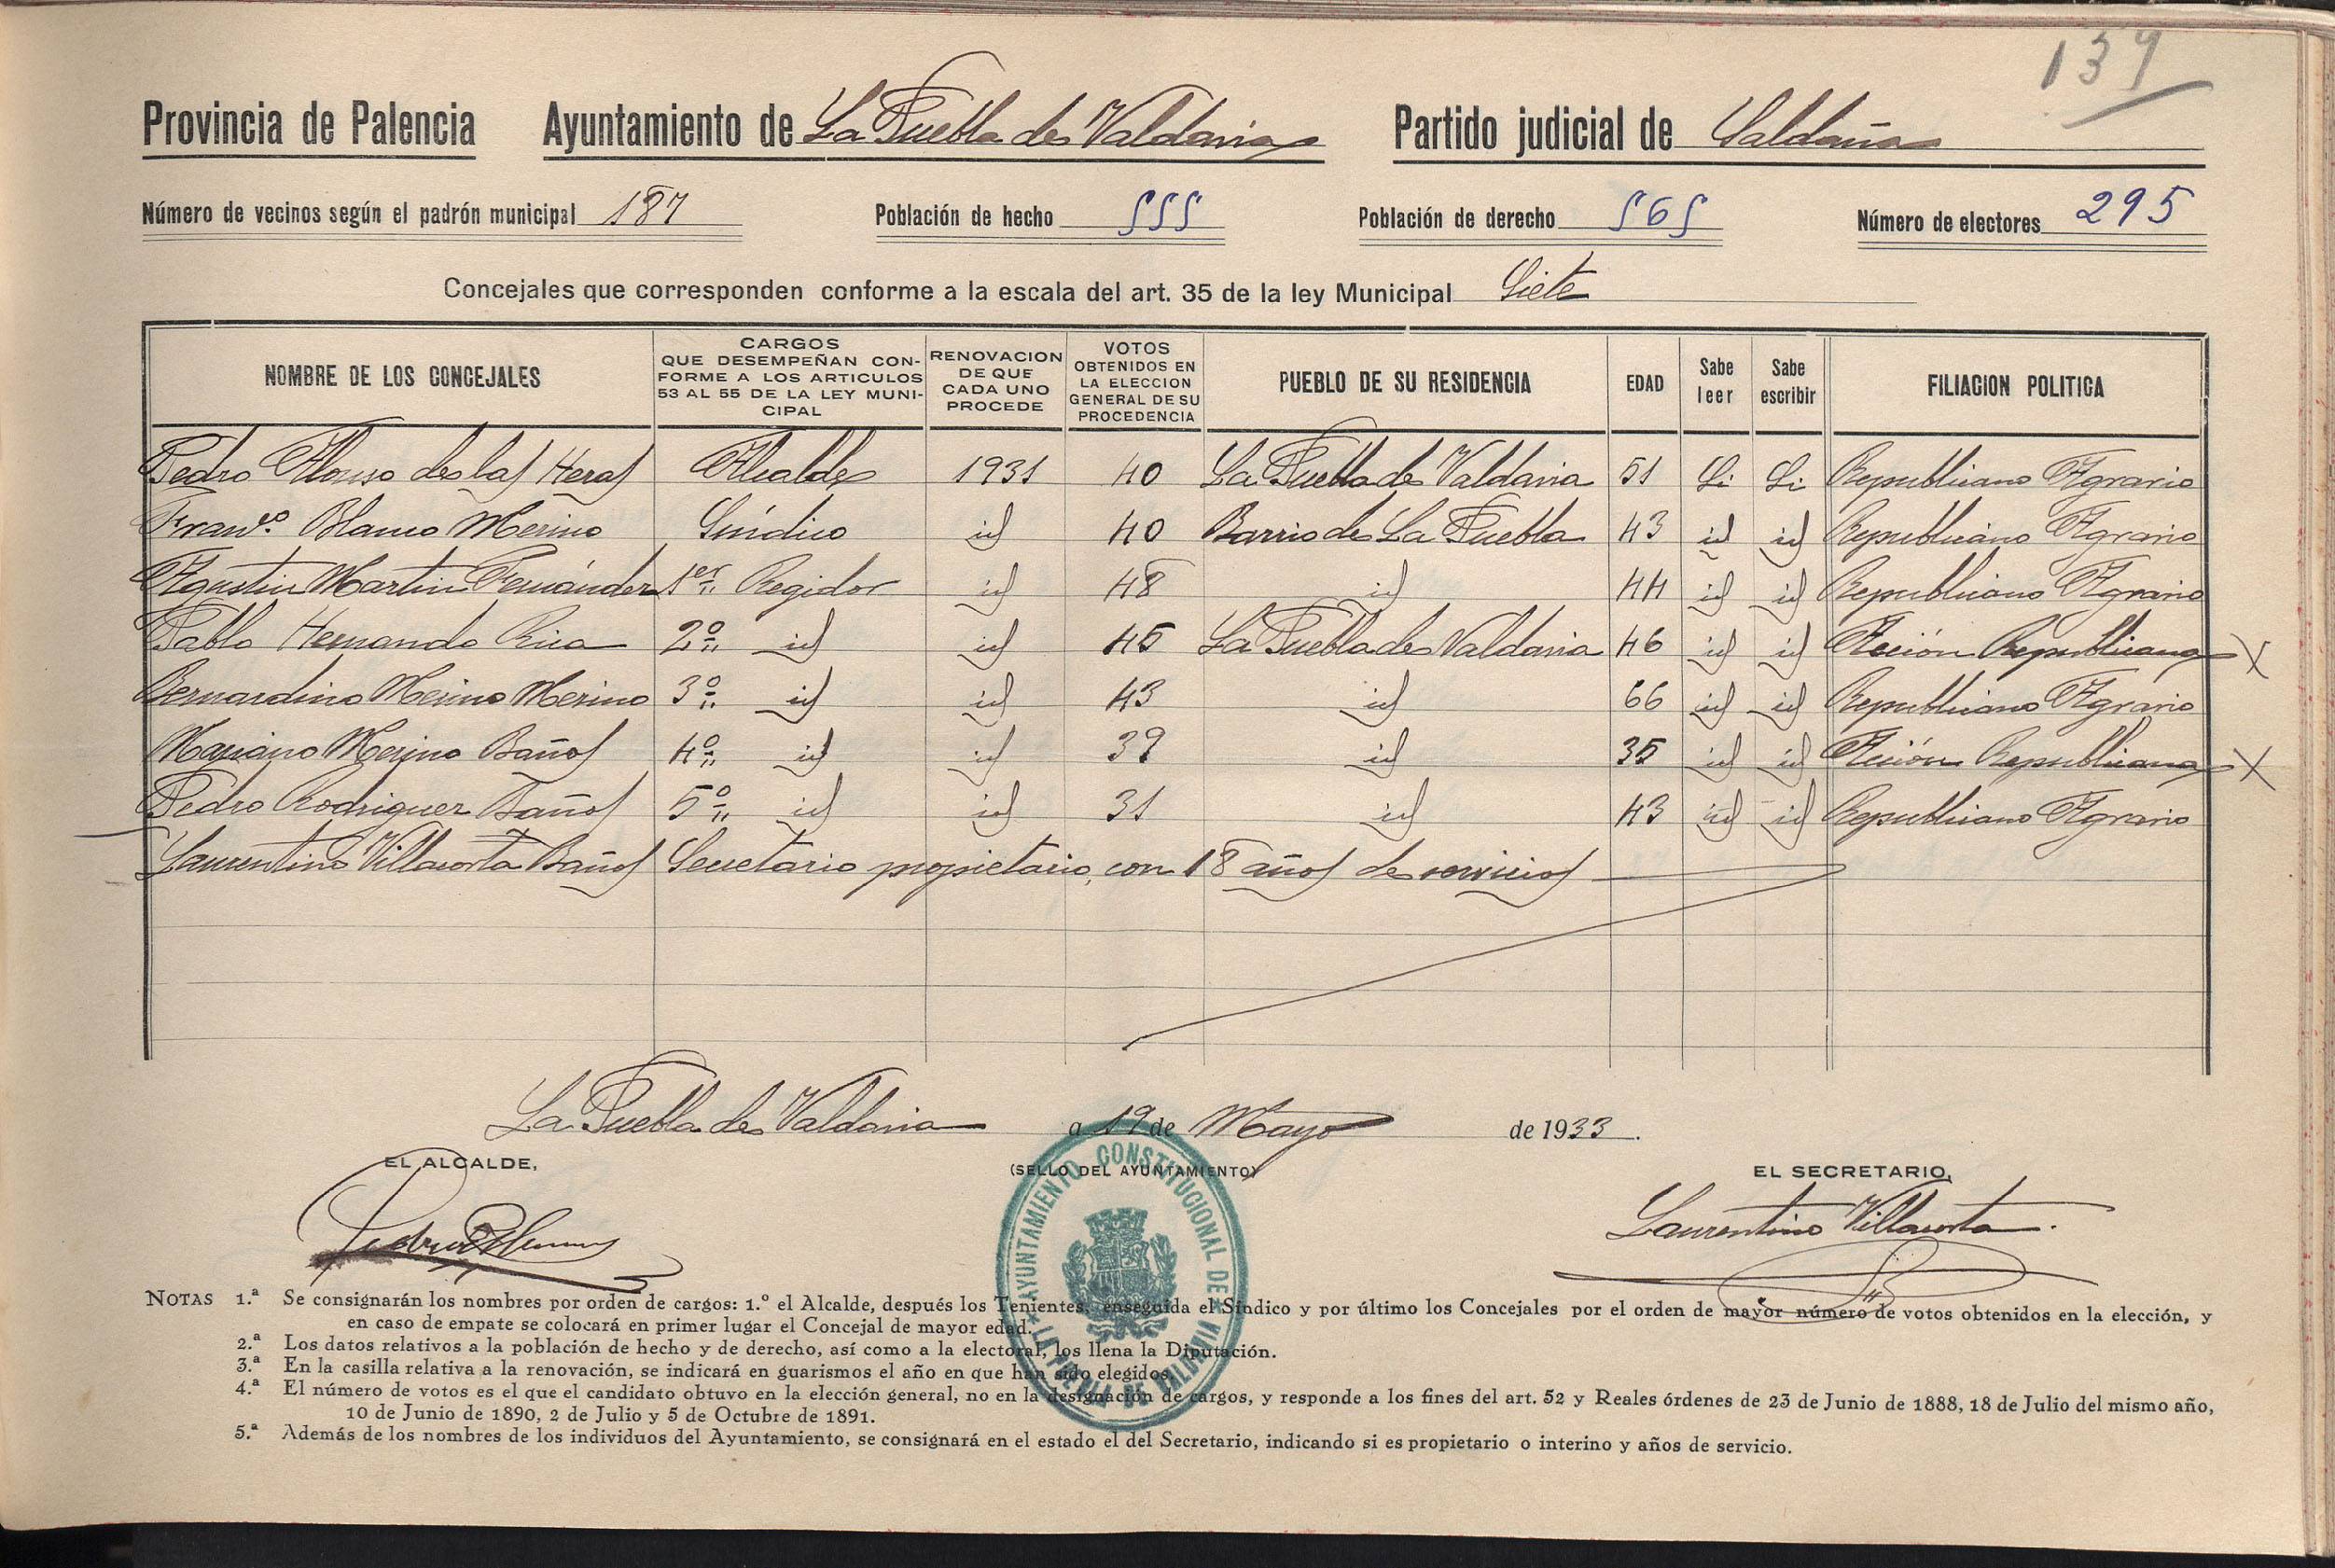 139
Provincia de Palencia Ayuntamiento de La Puebla de Valdavia Partido judicial de Saldaña
Número de vecinos según el padrón municipal 187 Población de hecho 555 Población de derecho 565 Número de electores 295
Concejales que corresponden conforme a la escala del art. 35 de la ley Municipal Siete
NOMBRE DE LOS CONCEJALES
CARGOS
QUE DESEMPEÑAN CON-
FORME A LOS ARTICULOS
53 AL 55 DE LA LEY MUNI-
CIPAL
RENOVACION
DE QUE
CADA UNO
PROCEDE
VOTOS
OBTENIDOS EN
LA ELECCION
GENERAL DE SU
PROCEDENCIA
PUEBLO DE SU RESIDENCIA
EDAD
Sabe
leer
Sabe
escribir
FILIACION POLITICA
Pedro Alonso de las Heras Alcalde 1931 40 La Puebla de Valdavia 51 Si Si Republicano Agrario
Franco. Blanco Merino Síndico id 40 Barrio de La Puebla 43 id id Republicano Agrario
Agustin Martin Fernández 1er Regidor id 48 id 44 id id Republicano Agrario
Pablo Hernando Rica 2º id id 45 La Puebla de Valdavia 46 id id Acción Republicana X
Bernardino Merino Merino 3º id id 43 id 66 id id Republicano Agrario
Mariano Merino Baños 4º id id 39 id 35 id id Acción Republicana X
Pedro Rodriguez Baños 5º id id 31 id 43 id id Republicano Agrario
Laurentino Villacorta Baños Secretario propietario, con 18 años de servicios
La Puebla de Valdavia a 19 de Mayo de 1933.
EL ALCALDE, (SELLO DEL AYUNTAMIENTO) EL SECRETARIO,
AYUNTAMIENTO CONSTITUCIONAL DE LA PUEBLA DE VALDAVIA
Pedro Alonso
Laurentino Villacorta.
NOTAS 1.ª Se consignarán los nombres por orden de cargos: 1.º el Alcalde, después los Tenientes, enseguida el Síndico y por último los Concejales por el orden de mayor número de votos obtenidos en la elección, y
en caso de empate se colocará en primer lugar el Concejal de mayor edad.
2.ª Los datos relativos a la población de hecho y de derecho, así como a la electoral, los llena la Diputación.
3.ª En la casilla relativa a la renovación, se indicará en guarismos el año en que han sido elegidos.
4.ª El número de votos es el que el candidato obtuvo en la elección general, no en la designación de cargos, y responde a los fines del art. 52 y Reales órdenes de 23 de Junio de 1888, 18 de Julio del mismo año,
10 de Junio de 1890, 2 de Julio y 5 de Octubre de 1891.
5.ª Además de los nombres de los individuos del Ayuntamiento, se consignará en el estado el del Secretario, indicando si es propietario o interino y años de servicio.